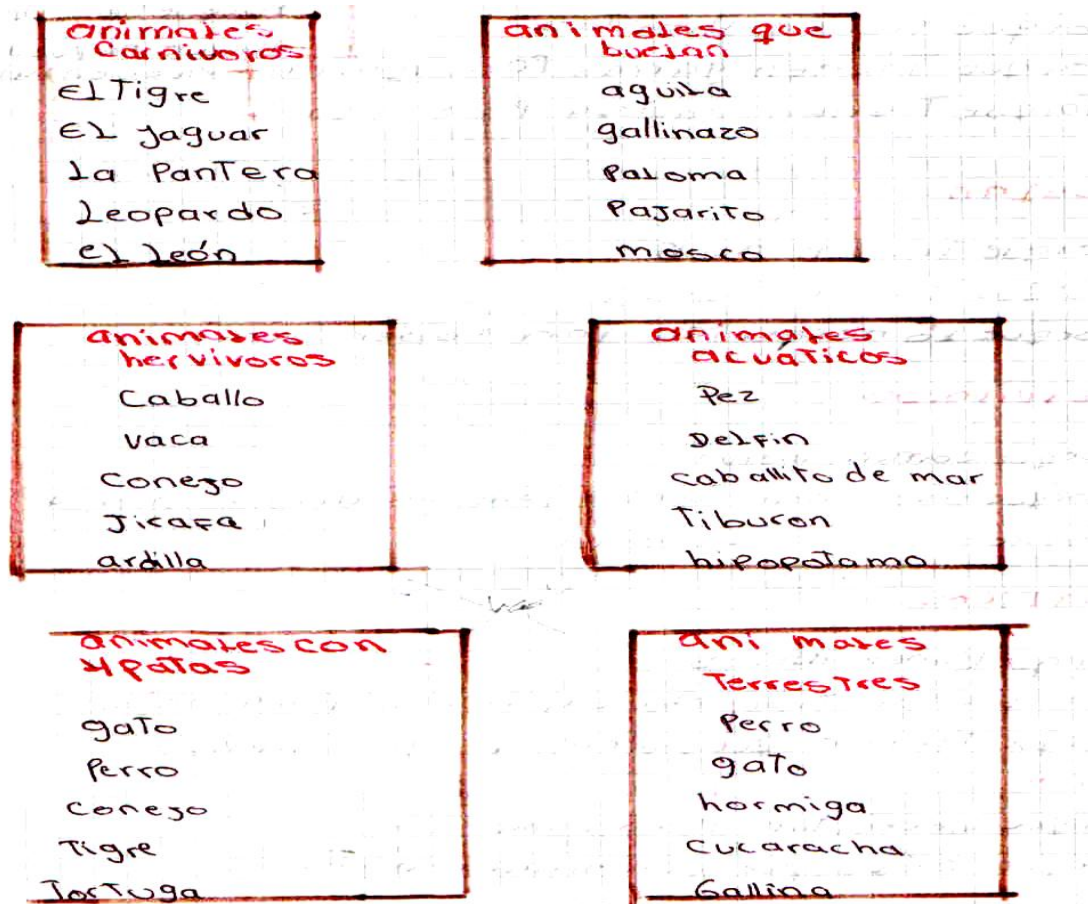 animales
Carnivoros
El Tigre
EL Jaguar
La Pantera
Leopardo
el León
animales que
buelan
aguila
gallinazo
Paloma
Pajarito
mosco
animales
hervivoros
Caballo
vaca
Conejo
Jirafa
ardilla
animales
acuáticos
Pez
Delfin
caballito de mar
Tiburon
hipopotamo
animales con
4 patas
gato
Perro
Conejo
Tigre
Tortuga
ani males
Terrestres
Perro
gato
hormiga
cucaracha
Gallina